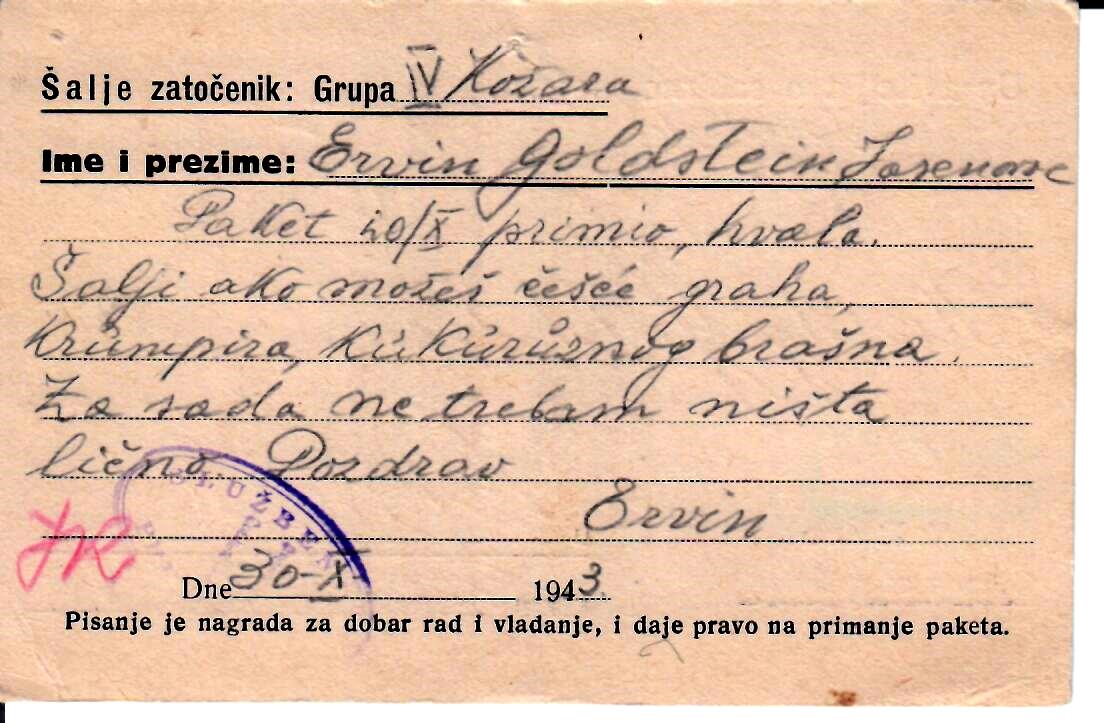 Šalje zatočenik: Grupa IV Kožara
Ime i prezime: Ervin Goldstein Jasenovac
Paket 20/X primio, hvala.
Šalji ako možeš češće graha,
Krumpira, Kukuruznog brašna.
Za sada ne trebam ništa
lično. Pozdrav
Ervin
SLUŽBEN
Dne 30-X 1943.
Pisanje je nagrada za dobar rad i vladanje, i daje pravo na primanje paketa.